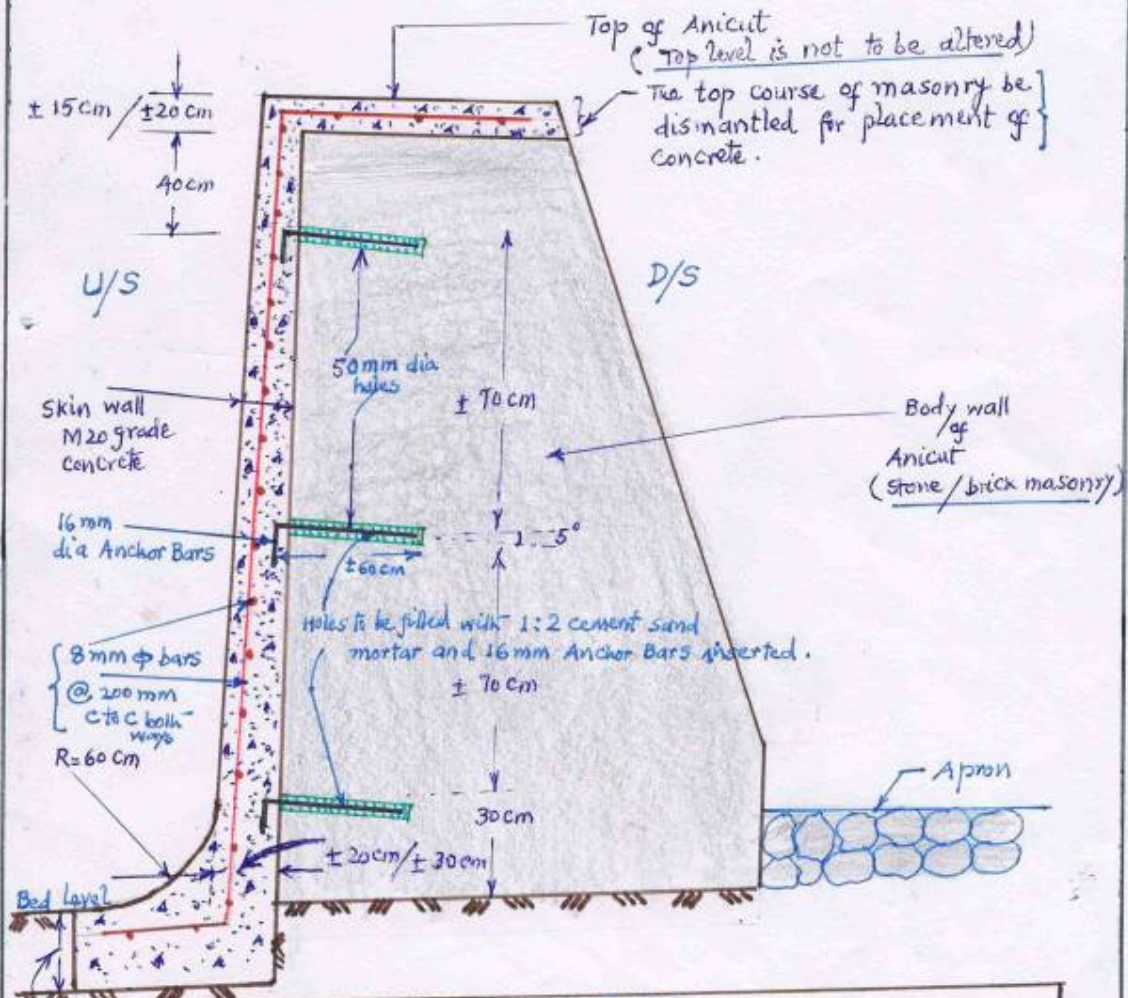 Top of Anicut
( Top level is not to be altered)
The top course of masonry be
dismantled for placement of
concrete.
± 15cm / ±20cm
40cm
U/S
D/S
50mm dia
holes
± 70cm
Skin wall
M20 grade
concrete
Body wall
of
Anicut
(stone / brick masonry)
16mm
dia Anchor Bars
5°
±60cm
Holes to be filled with 1:2 cement sand
mortar and 16mm Anchor Bars inserted.
± 70cm
8mm φ bars
@ 200mm
C to C both
ways
R=60cm
Apron
30cm
±20cm/±30cm
Bed Level